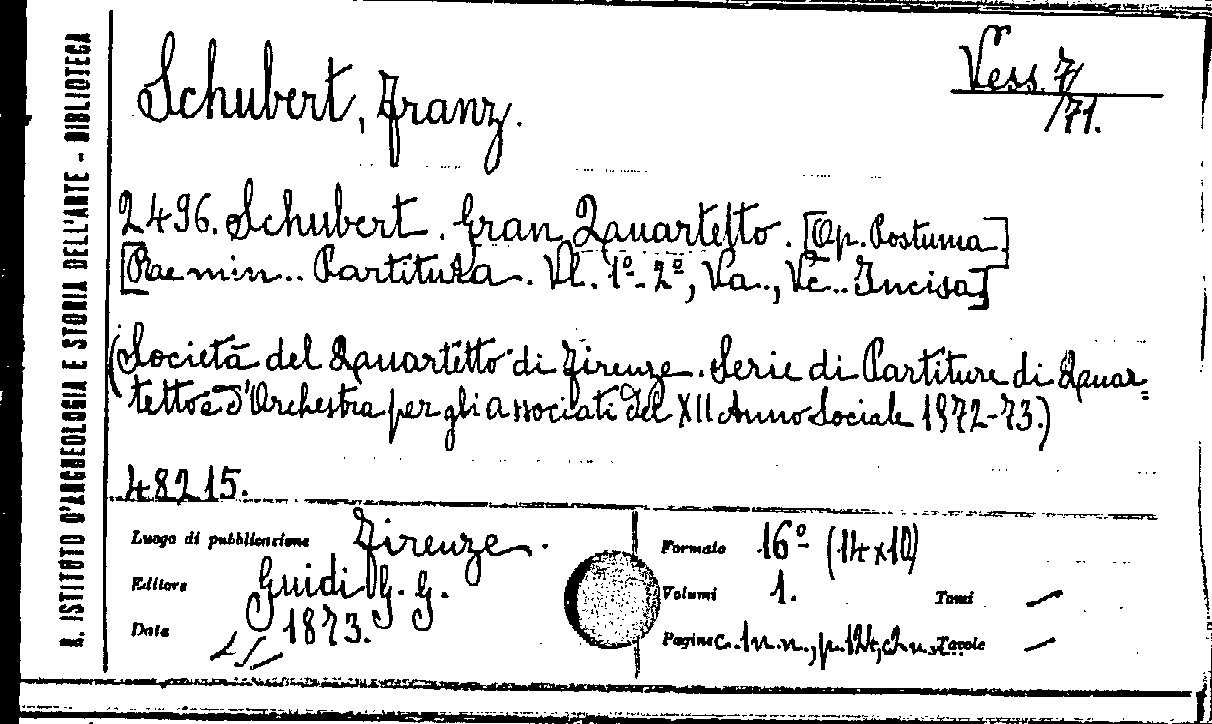 R. ISTITUTO D'ARCHEOLOGIA E STORIA DELL'ARTE - BIBLIOTECA
Schubert, Franz.
Vess. 7/
/71.
2496. Schubert. Gran Quartetto. [Op. Postuma]
[Rae min.. Partitura. Vl. 1º-2º, Va., Vc.. Incisa]
(Società del Quartetto di Firenze. Serie di Partiture di Quar=
tetto e d'Orchestra per gli associati del XII Anno Sociale 1872-73.)
48215.
Luogo di pubblicazione Firenze.
Editore Guidi G. G.
Data 1873.
Formato 16º (14x10)
Volumi 1. Tomi —
Pagine c. 1 n.n., p. 124, c. 2 n.n. Tavole —